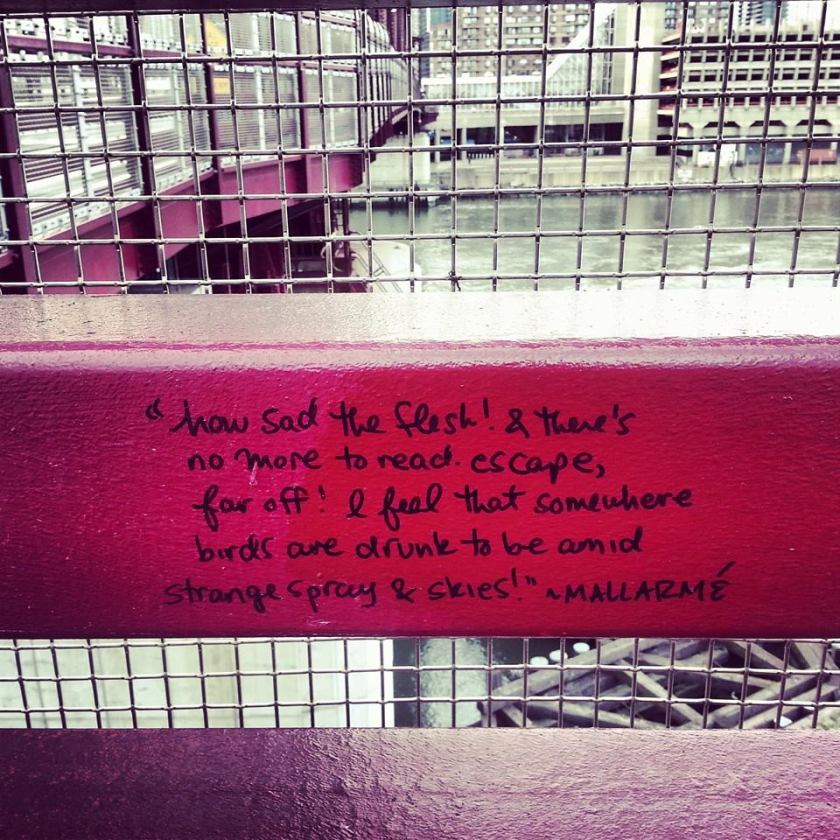 "how sad the flesh! & there's
no more to read. escape,
far off! I feel that somewhere
birds are drunk to be amid
strange spray & skies!" ~MALLARMÉ